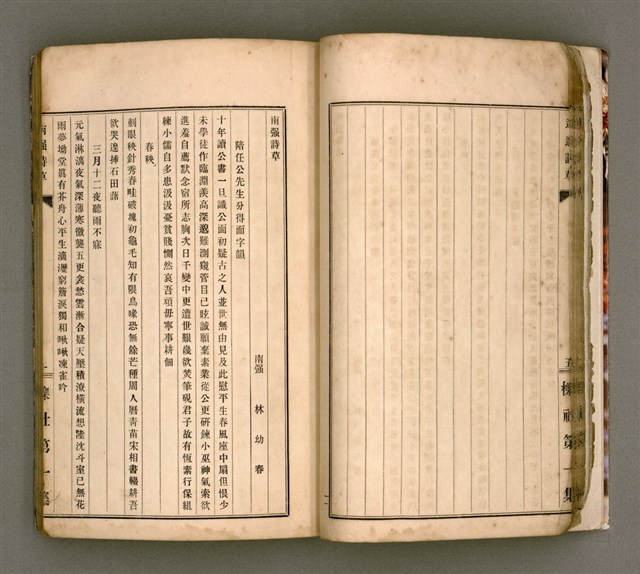 南強詩草
南强　林幼春
陪任公先生分得面字韻
十年讀公書一旦識公面初疑古之人並世無由見及此慰平生春風座中扇但恨少
未學徒作臨淵羨高深邈難測窺管目已眩誠願棄素業從公更研鍊小巫神氣索欲
進羞自薦默念宿所志胸次日千變中更遭世艱幾欲焚筆硯君子故有恆素行保組
練小儒自多患汲汲憂貧賤惻然哀吾頑毋寧事耕佃
春秧
刺眼秧針秀春畦破塊初龜毛知有限鳥喙恐無餘芒種周人曆青苗宋相書輟耕吾
欲哭遑揷石田蔬
三月十二夜聽雨不寐
元氣淋漓夜氣深薄寒微襲五更衾愁雲漸合疑天壓積潦橫流想陸沈斗室已無花
雨夢坳堂眞有芥舟心平生滴瀝窮簷淚獨和啾啾凍雀吟
南强詩草
櫟社第一集
櫟社第一集